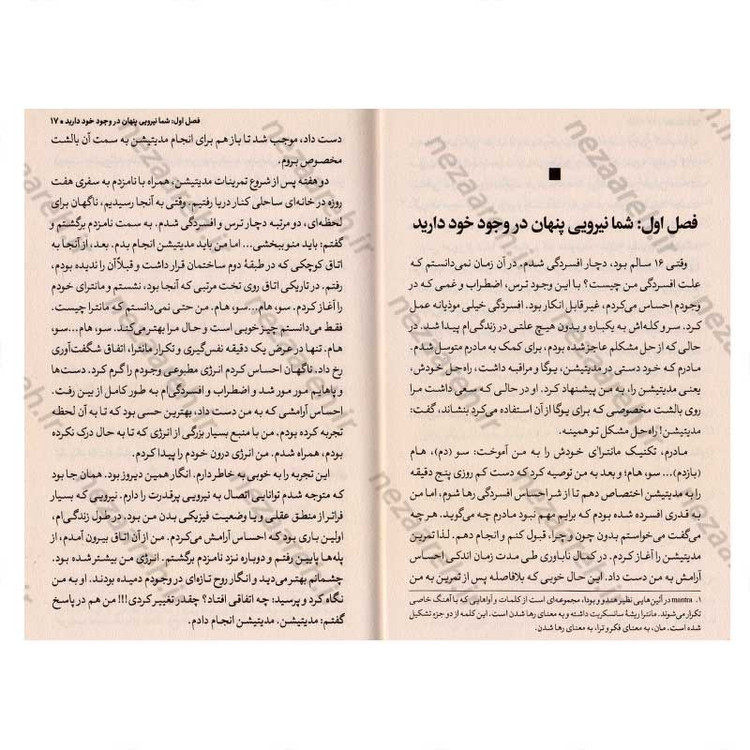 فصل اول: شما نیرویی پنهان در وجود خود دارید
وقتی ۱۶ سالم بود، دچار افسردگی شدم. در آن زمان نمی‌دانستم که
علت افسردگی من چیست؟ با این وجود ترس، اضطراب و غمی که در
وجودم احساس می‌کردم، غیر قابل انکار بود. افسردگی خیلی موذیانه عمل
کرد. سر و کله‌اش به یکباره و بدون هیچ علتی در زندگی‌ام پیدا شد. در
حالی که از حل مشکلم عاجز شده بودم، برای کمک به مادرم متوسل شدم.
مادرم که خود دستی در مدیتیشن، یوگا و مراقبه داشت، راه‌حل خودش،
یعنی مدیتیشن را، به من پیشنهاد کرد. او در حالی که سعی داشت مرا
روی بالشت مخصوصی که برای یوگا از آن استفاده می‌کرد بنشاند، گفت:
مدیتیشن! راه حل مشکل تو همینه.
مادرم، تکنیک مانترا۱ی خودش را به من آموخت: سو (دم)، هام
(بازدم)... سو، هام؛ و بعد به من توصیه کرد که دست کم روزی پنج دقیقه
را به مدیتیشن اختصاص دهم تا از شر احساس افسردگی رها شوم، اما من
به قدری افسرده بودم که برایم مهم نبود مادرم چه می‌گوید. هر چه
می‌گفت می‌خواستم بدون چون و چرا، قبول کنم و انجام دهم. لذا تمرین
مدیتیشن را آغاز کردم. در کمال ناباوری طی مدت زمان اندکی احساس
آرامش به من دست داد. این حال خوبی که بلافاصله پس از تمرین به من
۱. mantra در آئین‌هایی نظیر هندو و بودا، مجموعه‌ای است از کلمات و آواهایی که با آهنگ خاصی
تکرار می‌شوند. مانترا ریشهٔ سانسکریت داشته و به معنای رها شدن است. این کلمه از دو جزء تشکیل
شده است. مان، به معنای فکر و ترا، به معنای رها شدن.
فصل اول: شما نیرویی پنهان در وجود خود دارید ● ۱۷
دست داد، موجب شد تا باز هم برای انجام مدیتیشن به سمت آن بالشت
مخصوص بروم.
دو هفته پس از شروع تمرینات مدیتیشن، همراه با نامزدم به سفری هفت
روزه در خانه‌ای ساحلی کنار دریا رفتیم. وقتی به آنجا رسیدیم، ناگهان برای
لحظه‌ای، دو مرتبه دچار ترس و افسردگی شدم. به سمت نامزدم برگشتم و
گفتم: باید منو ببخشی... اما من باید مدیتیشن انجام بدم. بعد، از آنجا به
اتاق کوچکی که در طبقهٔ دوم ساختمان قرار داشت و قبلاً آن را ندیده بودم،
رفتم. در تاریکی اتاق روی تخت مرتبی که آنجا بود، نشستم و مانترای خودم
را آغاز کردم. سو، هام...سو، هام. من حتی نمی‌دانستم که مانترا چیست.
فقط می‌دانستم چیز خوبی است و حال مرا بهتر می‌کند. سو، هام...سو،
هام. تنها در عرض یک دقیقه نفس‌گیری و تکرار مانترا، اتفاق شگفت‌آوری
رخ داد. ناگهان احساس کردم انرژی مطبوعی وجودم را گرم کرد. دست‌ها
و پاهایم مور مور شد و اضطراب و افسردگی‌ام به طور کامل از بین رفت.
احساس آرامشی که به من دست داد، بهترین حسی بود که تا به آن لحظه
تجربه کرده بودم. من با منبع بسیار بزرگی از انرژی که تا به حال درک نکرده
بودم، همراه شدم. من انرژی درون خودم را پیدا کردم.
این تجربه را به خوبی به خاطر دارم. انگار همین دیروز بود. همان جا بود
که متوجه شدم توانایی اتصال به نیرویی پرقدرت را دارم. نیرویی که بسیار
فراتر از منطق عقلی و یا وضعیت فیزیکی بدن من بود. در طول زندگی‌ام،
اولین باری بود که احساس آرامش می‌کردم. من از آن اتاق بیرون آمدم، از
پله‌ها پایین رفتم و دوباره نزد نامزدم برگشتم. انرژی من بیشتر شده بود.
چشمانم بهتر می‌دید و انگار روح تازه‌ای در وجودم دمیده بودند. او به من
نگاه کرد و پرسید: چه اتفاقی افتاد؟ چقدر تغییر کردی!!! من هم در پاسخ
گفتم: مدیتیشن. مدیتیشن انجام دادم.
nezaareh.ir